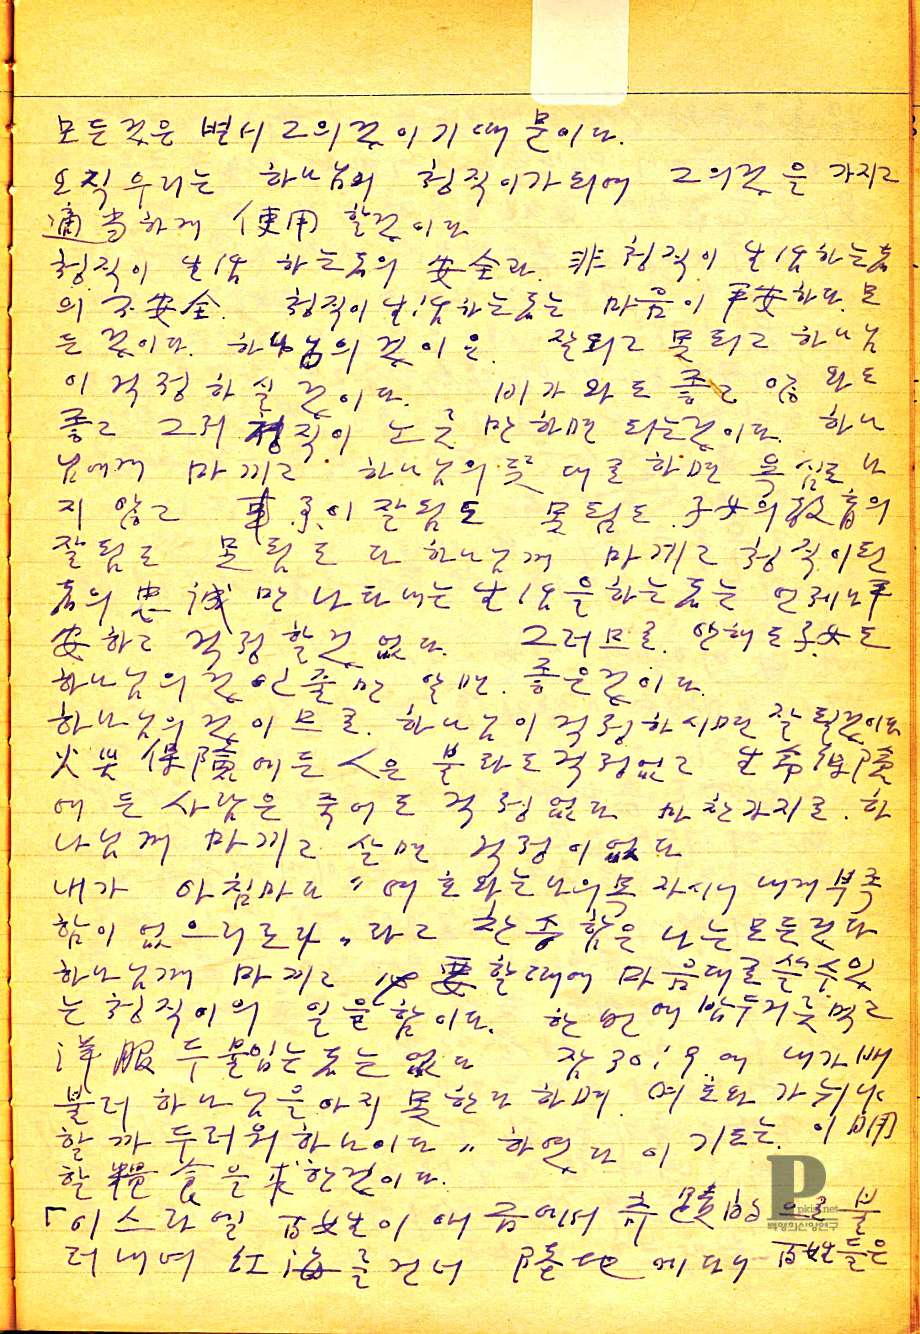 모든것은 벌서 그의것이기때문이다.
오직우리는 하나님의 청직이가되여 그의것을 가지고
適当하게 使用 할것이다
청직이 生活 하는者의 安全과. 非청직이 生活하는者
의 不安全. 청직이生活하는者는 마음이 平安하다. 모
든것이다. 하나님의것이요. 잘되고 못되고 하나님
이 걱정하실것이다. 비가와도 좋고 않와도
좋고 그저 청직이 노릇만하면 되는것이다. 하나
님에게 마끼고 하나님의뜻대로하면 욕심도나
지않고 事業이잘됨도 못됨도. 子女의敎育의
잘됨도 못됨도 다하나님게 마끼고 청직이된
者의 忠誠만나타내는 生活을하는者는 언제나平
安하고 걱정할것없다. 그러므로. 안해도子女도
하나님의것인줄만 알면. 좋은것이다.
하나님의것이므로. 하나님이걱정하시면잘될것이다
火災保險에든人은 불타도걱정없고 生命保險
에든사람은 죽어도걱정없다 마찬가지로. 하
나님게 마끼고 살면 걱정이없다
내가 아침마다 "여호와는나의목자시니 내게부족
함이없으리로다" 라고 찬송함은 나는모든것다
하나님게 마끼고 必要할때에 마음대로쓸수있
는청직이의 일을함이다. 한번에밥두거릇먹고
洋服두불입는者는없다 잠30:9에 내가배
불러하나님을아지못한다하며. 여호와가뉘냐
할까두려워하나이다" 하였다 이기도는. 이日用
할糧食을求한것이다.
「이스라엘 百姓이애굽에서 奇蹟的으로불
러내여 紅海를건너 陸地에다니 百姓들은
P
pkist.net
백영희신앙연구